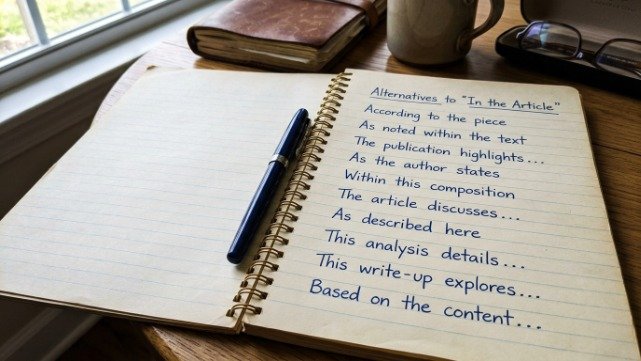 Alternatives to "In the Article"
According to the piece
As noted within the text
The publication highlights...
As the author states
Within this composition
The article discusses...
As described here
This analysis details...
This write-up explores...
Based on the content...